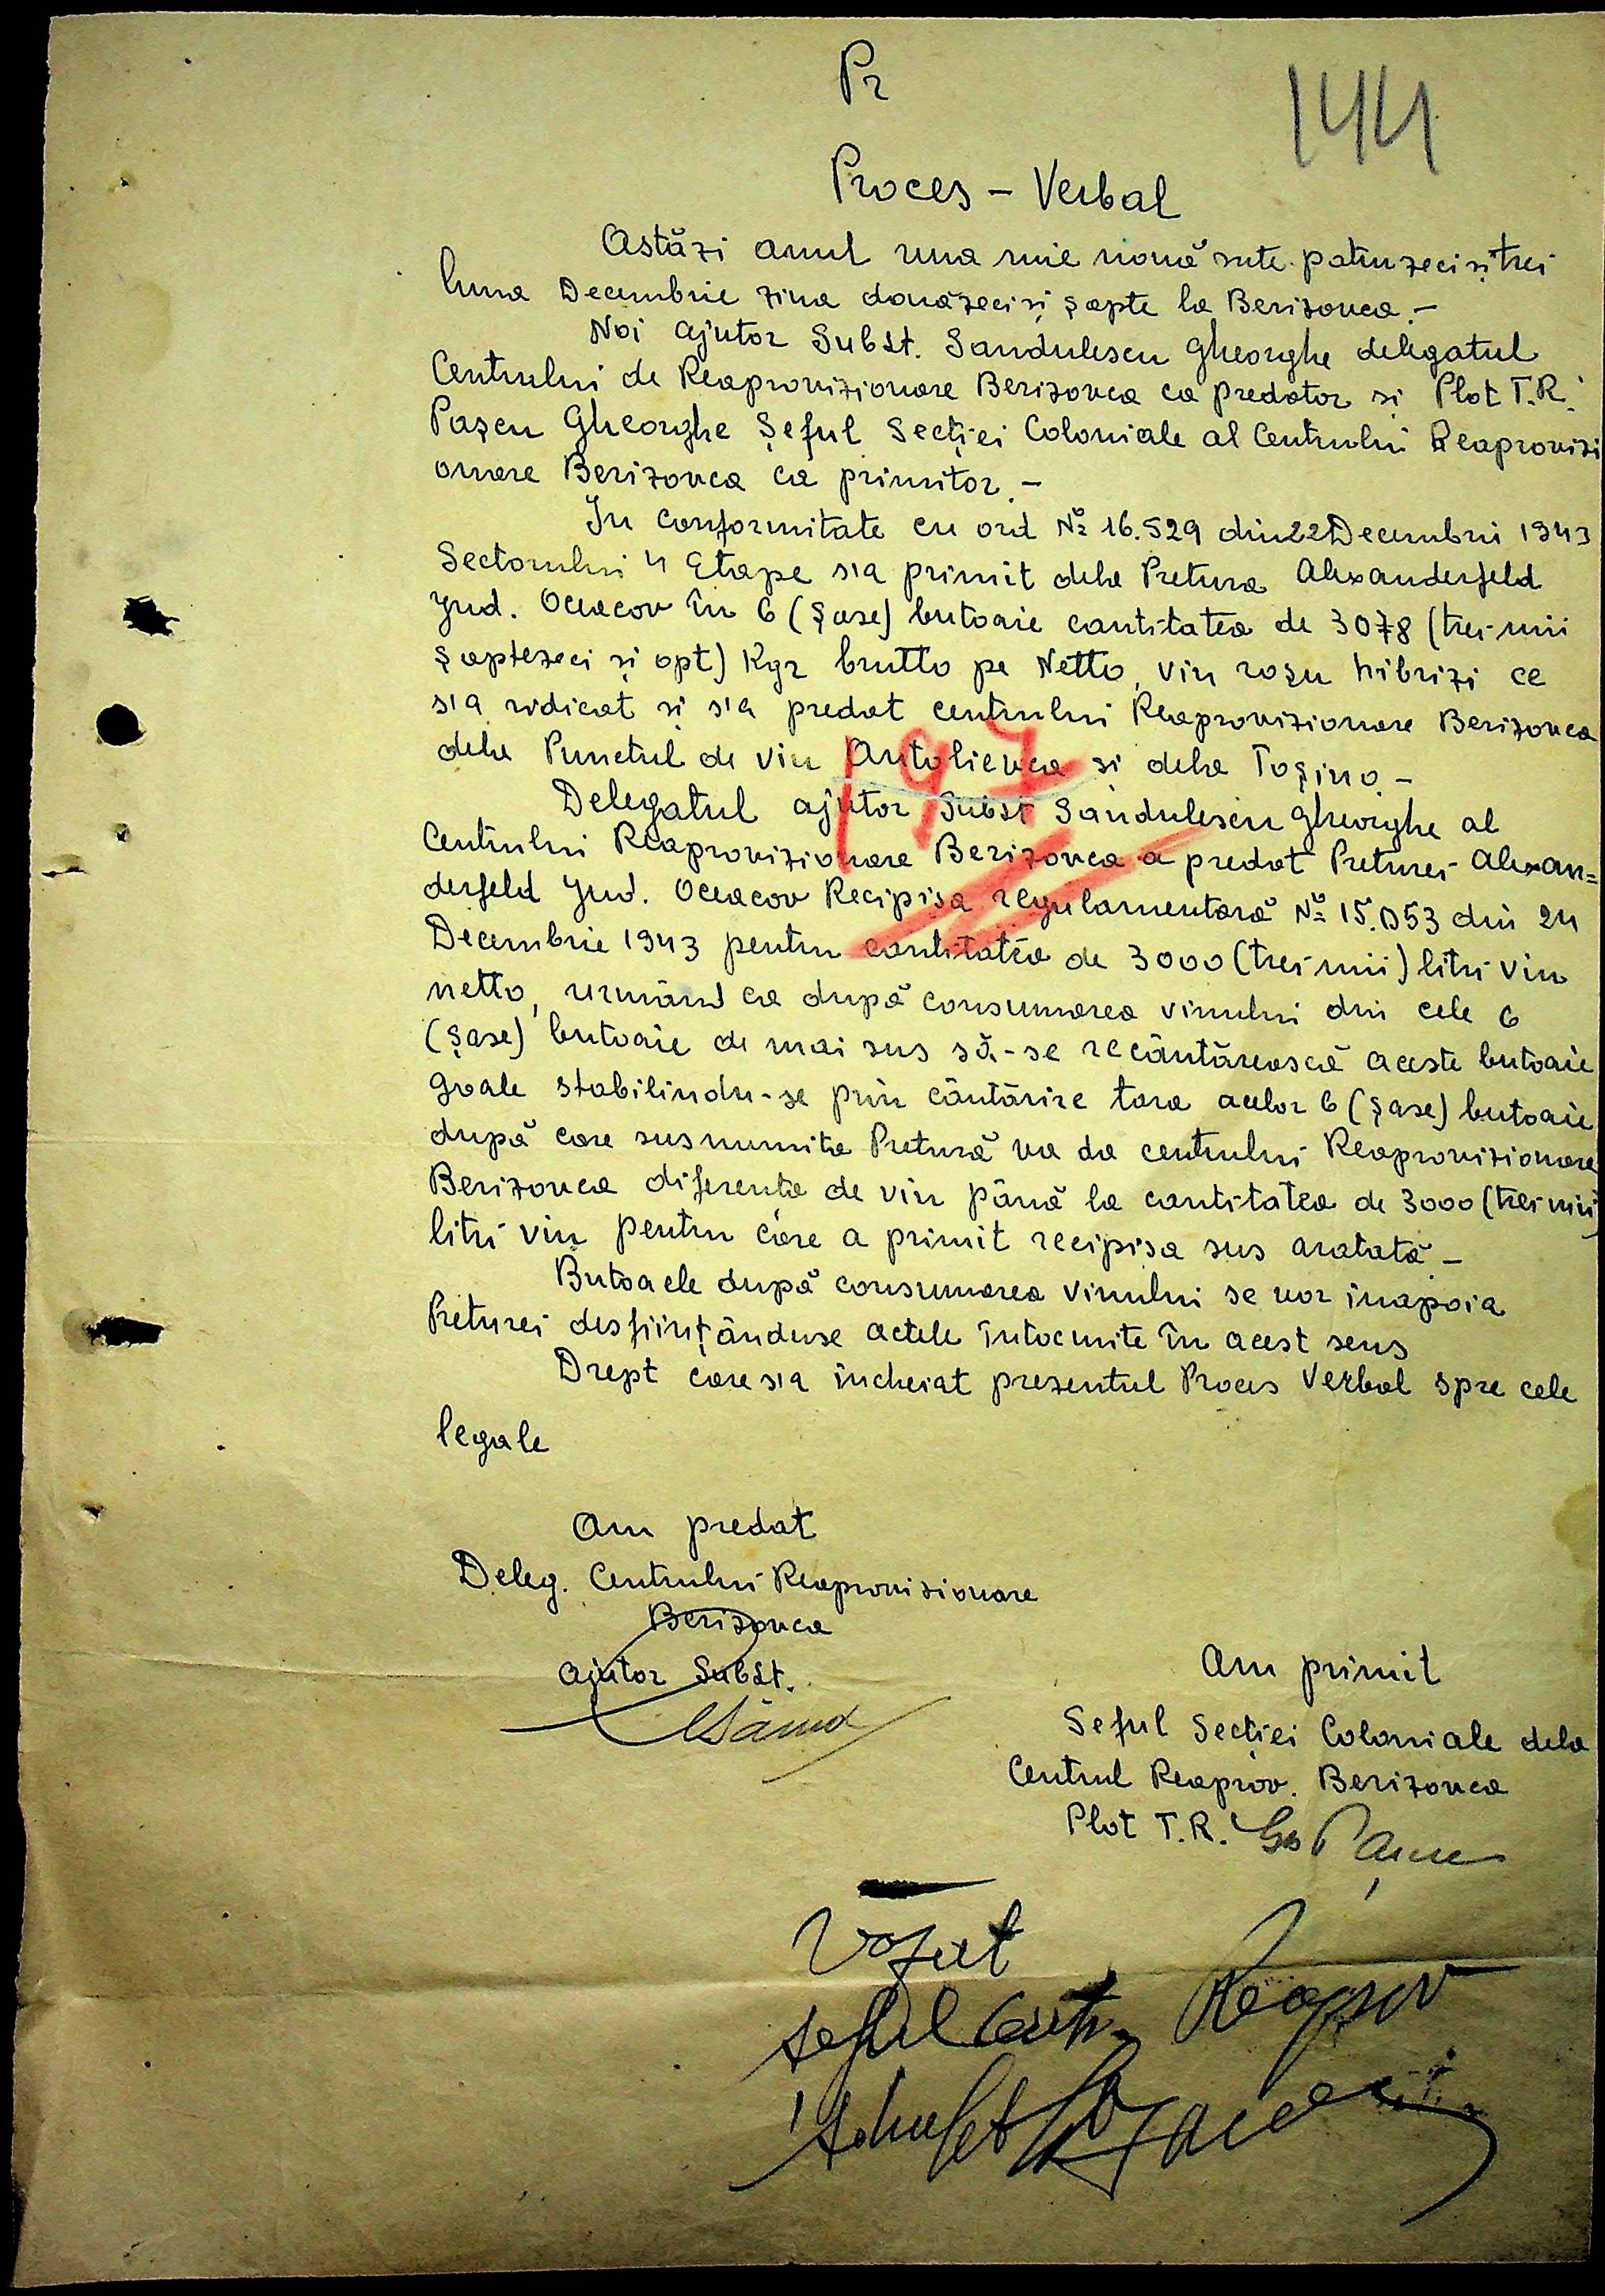 Pr
144
Proces - Verbal
Astăzi anul una mie nouă sute patruzeci și trei
luna Decembrie ziua douăzeci și șapte la Berizovca.-
Noi ajutor Subst. Sandulescu Gheorghe delegatul
Centrului de Reaprovizionare Berizovca ca predator si Plot T.R.
Pașcu Gheorghe Șeful Secției Coloniale al Centrului Reaprovizi
onare Berizovca ca primitor.-
In conformitate cu ord Nº 16.529 din 22 Decembri 1943
Sectorului 4 Etape s'a primit dela Pretura Alexanderfeld
Jud. Oceacov în 6 (șase) butoaie cantitatea de 3078 (trei mii
șaptezeci și opt) Kgr brutto pe Netto, vin roșu hibrizi ce
s'a ridicat si s'a predat centrului Reaprovizionare Berizovca
dela Punctul de vin Antolienca și dela Toșino.-
197
Delegatul ajutor Subst Sandulescu Gheorghe al
Centrului Reaprovizionare Berizovca a predat Preturei Alexan=
derfeld Jud. Oceacov Recipisa regulamentară Nº 15.053 din 24
Decembrie 1943 pentru cantitatea de 3000 (trei mii) litri vin
netto, urmând ca după consumarea vinului din cele 6
(șase) butoaie de mai sus să-se recântărească aceste butoaie
goale stabilindu-se prin cântărire tara acelor 6 (șase) butoaie
după care susnumita Pretură va da centrului Reaprovizionare
Berizovca diferența de vin până la cantitatea de 3000 (trei mii)
litri vin pentru care a primit recipisa sus aratată.-
Butoaele după consumarea vinului se vor inapoia
Preturei desființânduse actele întocmite în acest sens
Drept care s'a incheiat prezentul Proces Verbal spre cele
legale
Am predat
Deleg. Centrului Reaprovizionare
Berizovca
Ajutor Subst.
Am primit
Seful Secției Coloniale dela
Centrul Reaprov. Berizovca
Plot T.R.
Văzut
Seful Centr. Reaprov